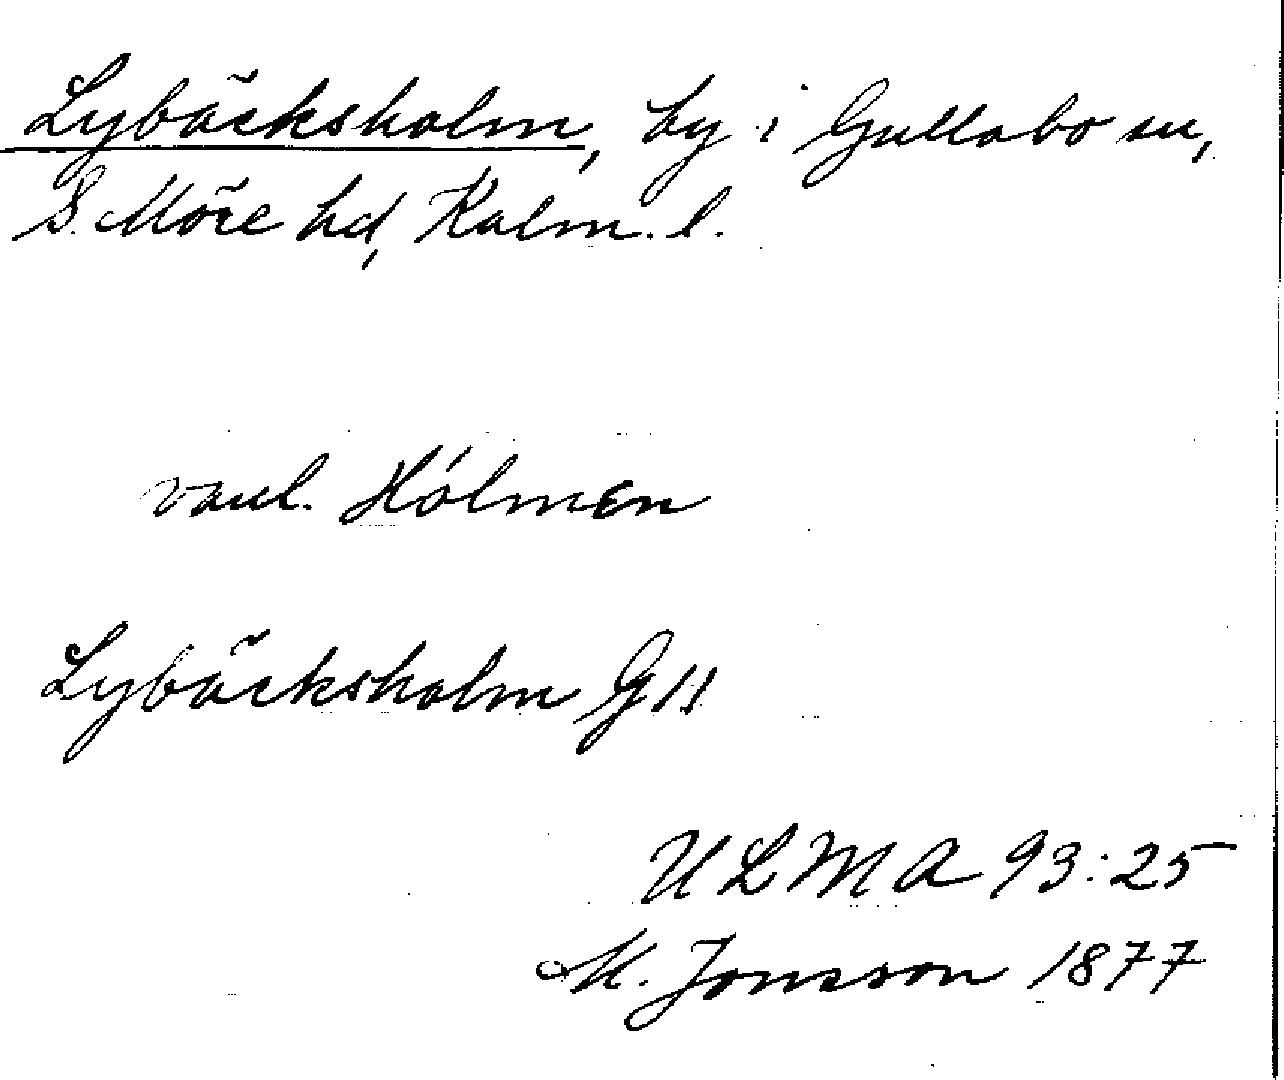 Lybäcksholm, by i Gullabo sn,
S. Möre hd, Kalm. l.
vanl. Hólmen
Lybäcksholm G11
ULMA 93:25
M. Jonsson 1877